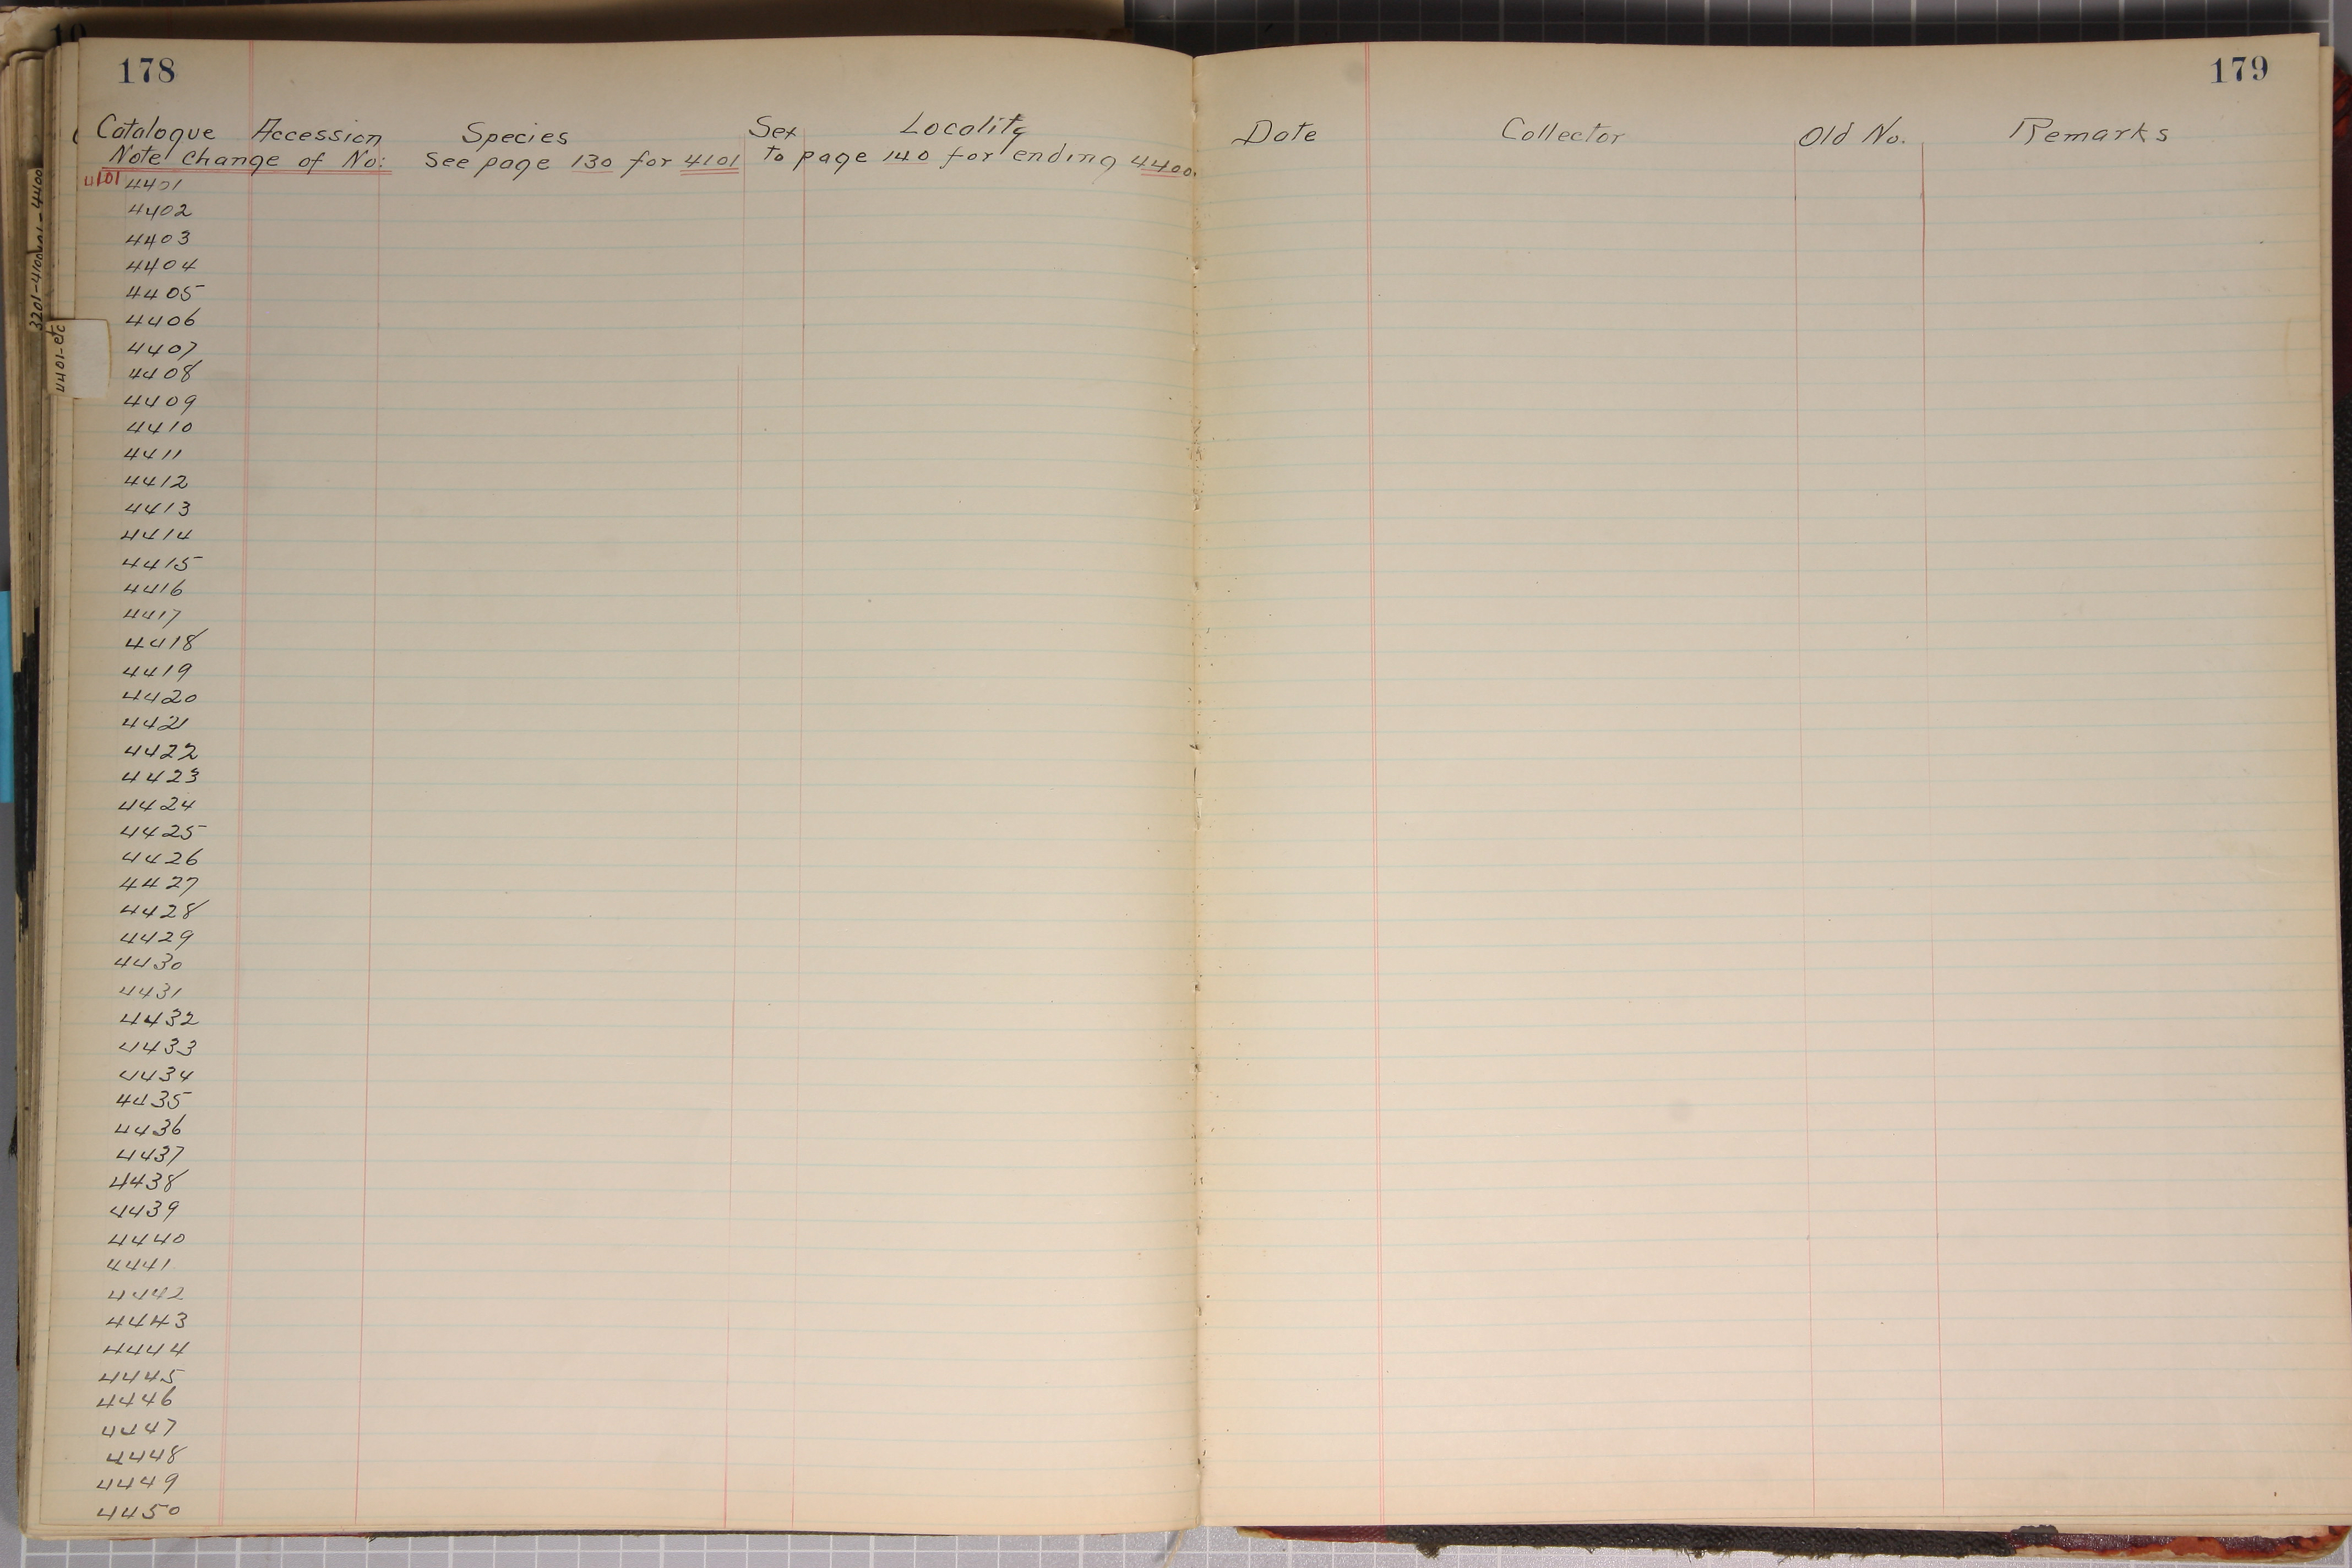 178
179
Catalogue Accession Species Sex Locality Date Collector Old No. Remarks
Note change of No: See page 130 for 4101 to page 140 for ending 4400.
4101 4401
4402
4403
4404
4405
4406
4407
4408
4409
4410
4411
4412
4413
4414
4415
4416
4417
4418
4419
4420
4421
4422
4423
4424
4425
4426
4427
4428
4429
4430
4431
4432
4433
4434
4435
4436
4437
4438
4439
4440
4441
4442
4443
4444
4445
4446
4447
4448
4449
4450
4401-etc